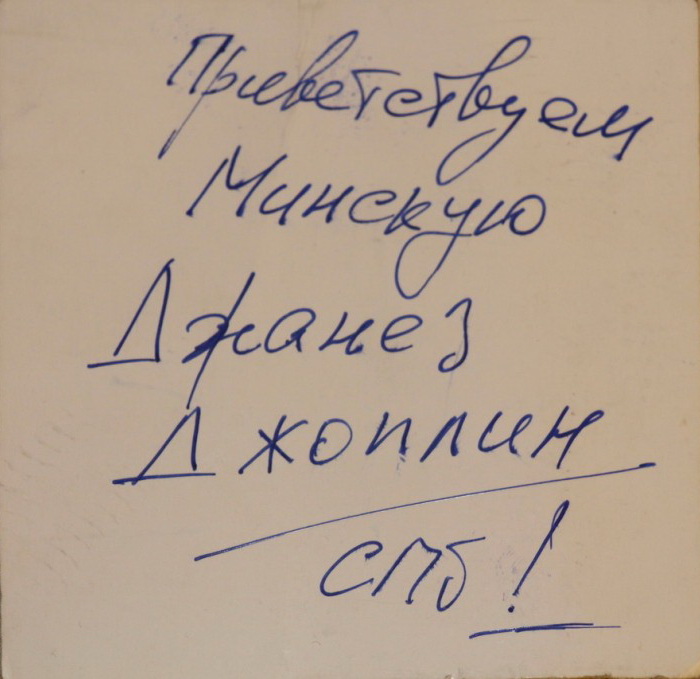 Приветствуем
Минскую
Джанез
Джоплин
СПб!